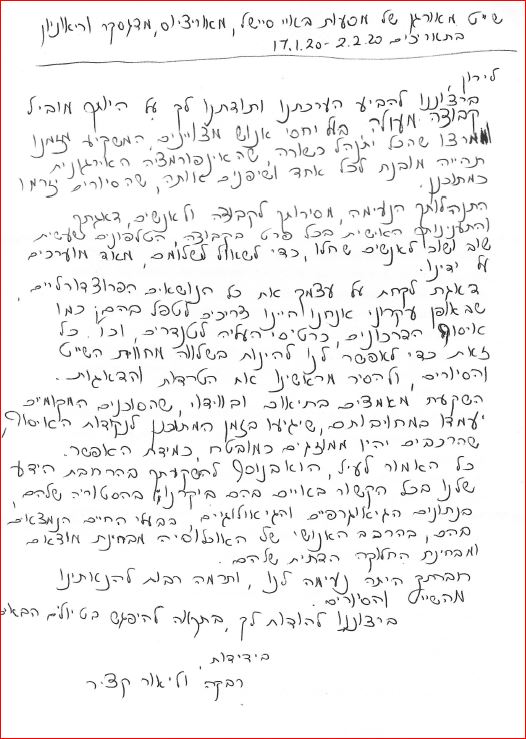 שייט מאורגן של מסעות באיי סיישל, מאוריציוס, מדגסקר וריאוניון
בתאריכים 17.1.20-2.2.20
לירון,
ברצוננו להביע הערכתנו ותודתנו לך על היותך מוביל
קבוצה מעולה, בעל יחסי אנוש מצויינים, המשקיע מזמנו
וממרצו שהכל יתנהל כשורה, שהאינפורמציה האירגונית
תהייה מובנת לכל אחד ושיפנים אותה, שהסיורים יזרמו
כמתוכנן.
התנהלותך הנעימה, מסירותך לקבוצה ולאנשים, דאגתך
והתעניינותך האישית בכל פרט בקבוצה, הטלפונים שעשית
שוב ושוב לאנשים שחלו, כדי לשאול לשלומם, מאוד מוערכים
על ידינו.
דאגת לקחת על עצמך את כל הנושאים הפרוצדורליים,
שבאופן עקרוני אנחנו היינו צריכים לטפל בהם: כמו
איסוף הדרכונים, כרטיסי העליה לטנדרים, וכו'. כל
זאת כדי לאפשר לנו להינות בשלווה מחווית השייט
והסיורים, ולהסיר מראשינו את הטרדות והדאגות.
השקעת מאמצים בתיאום ובווידוי, שהסוכנים המקומיים
יעמדו במחויבותם, שיגיעו בזמן המתוכנן לנקודות האיסוף,
שהרכבים יהיו ממוזגים כמובטח, כמידת האפשר.
כל האמור לעיל, הוא בנוסף להשקעתך בהרחבת הידע
שלנו בכל הקשור באיים בהם ביקרנו, בהסטוריה שלהם,
בנתונים הגיאוגרפיים והגיאולוגיים, בבעלי החיים הנמצאים
בהם, בהרכב האנושי של האוכלוסיה מבחינת מוצאם
ומבחינת החלוקה הדתית שלהם.
חברתך היתה נעימה לנו, ותרמה רבות להנאתינו
מהשייט והסיורים.
ברצוננו להודות לך, בתקווה להיפגש בטיולים הבאים
בידידות,
רבקה וליאור קציר